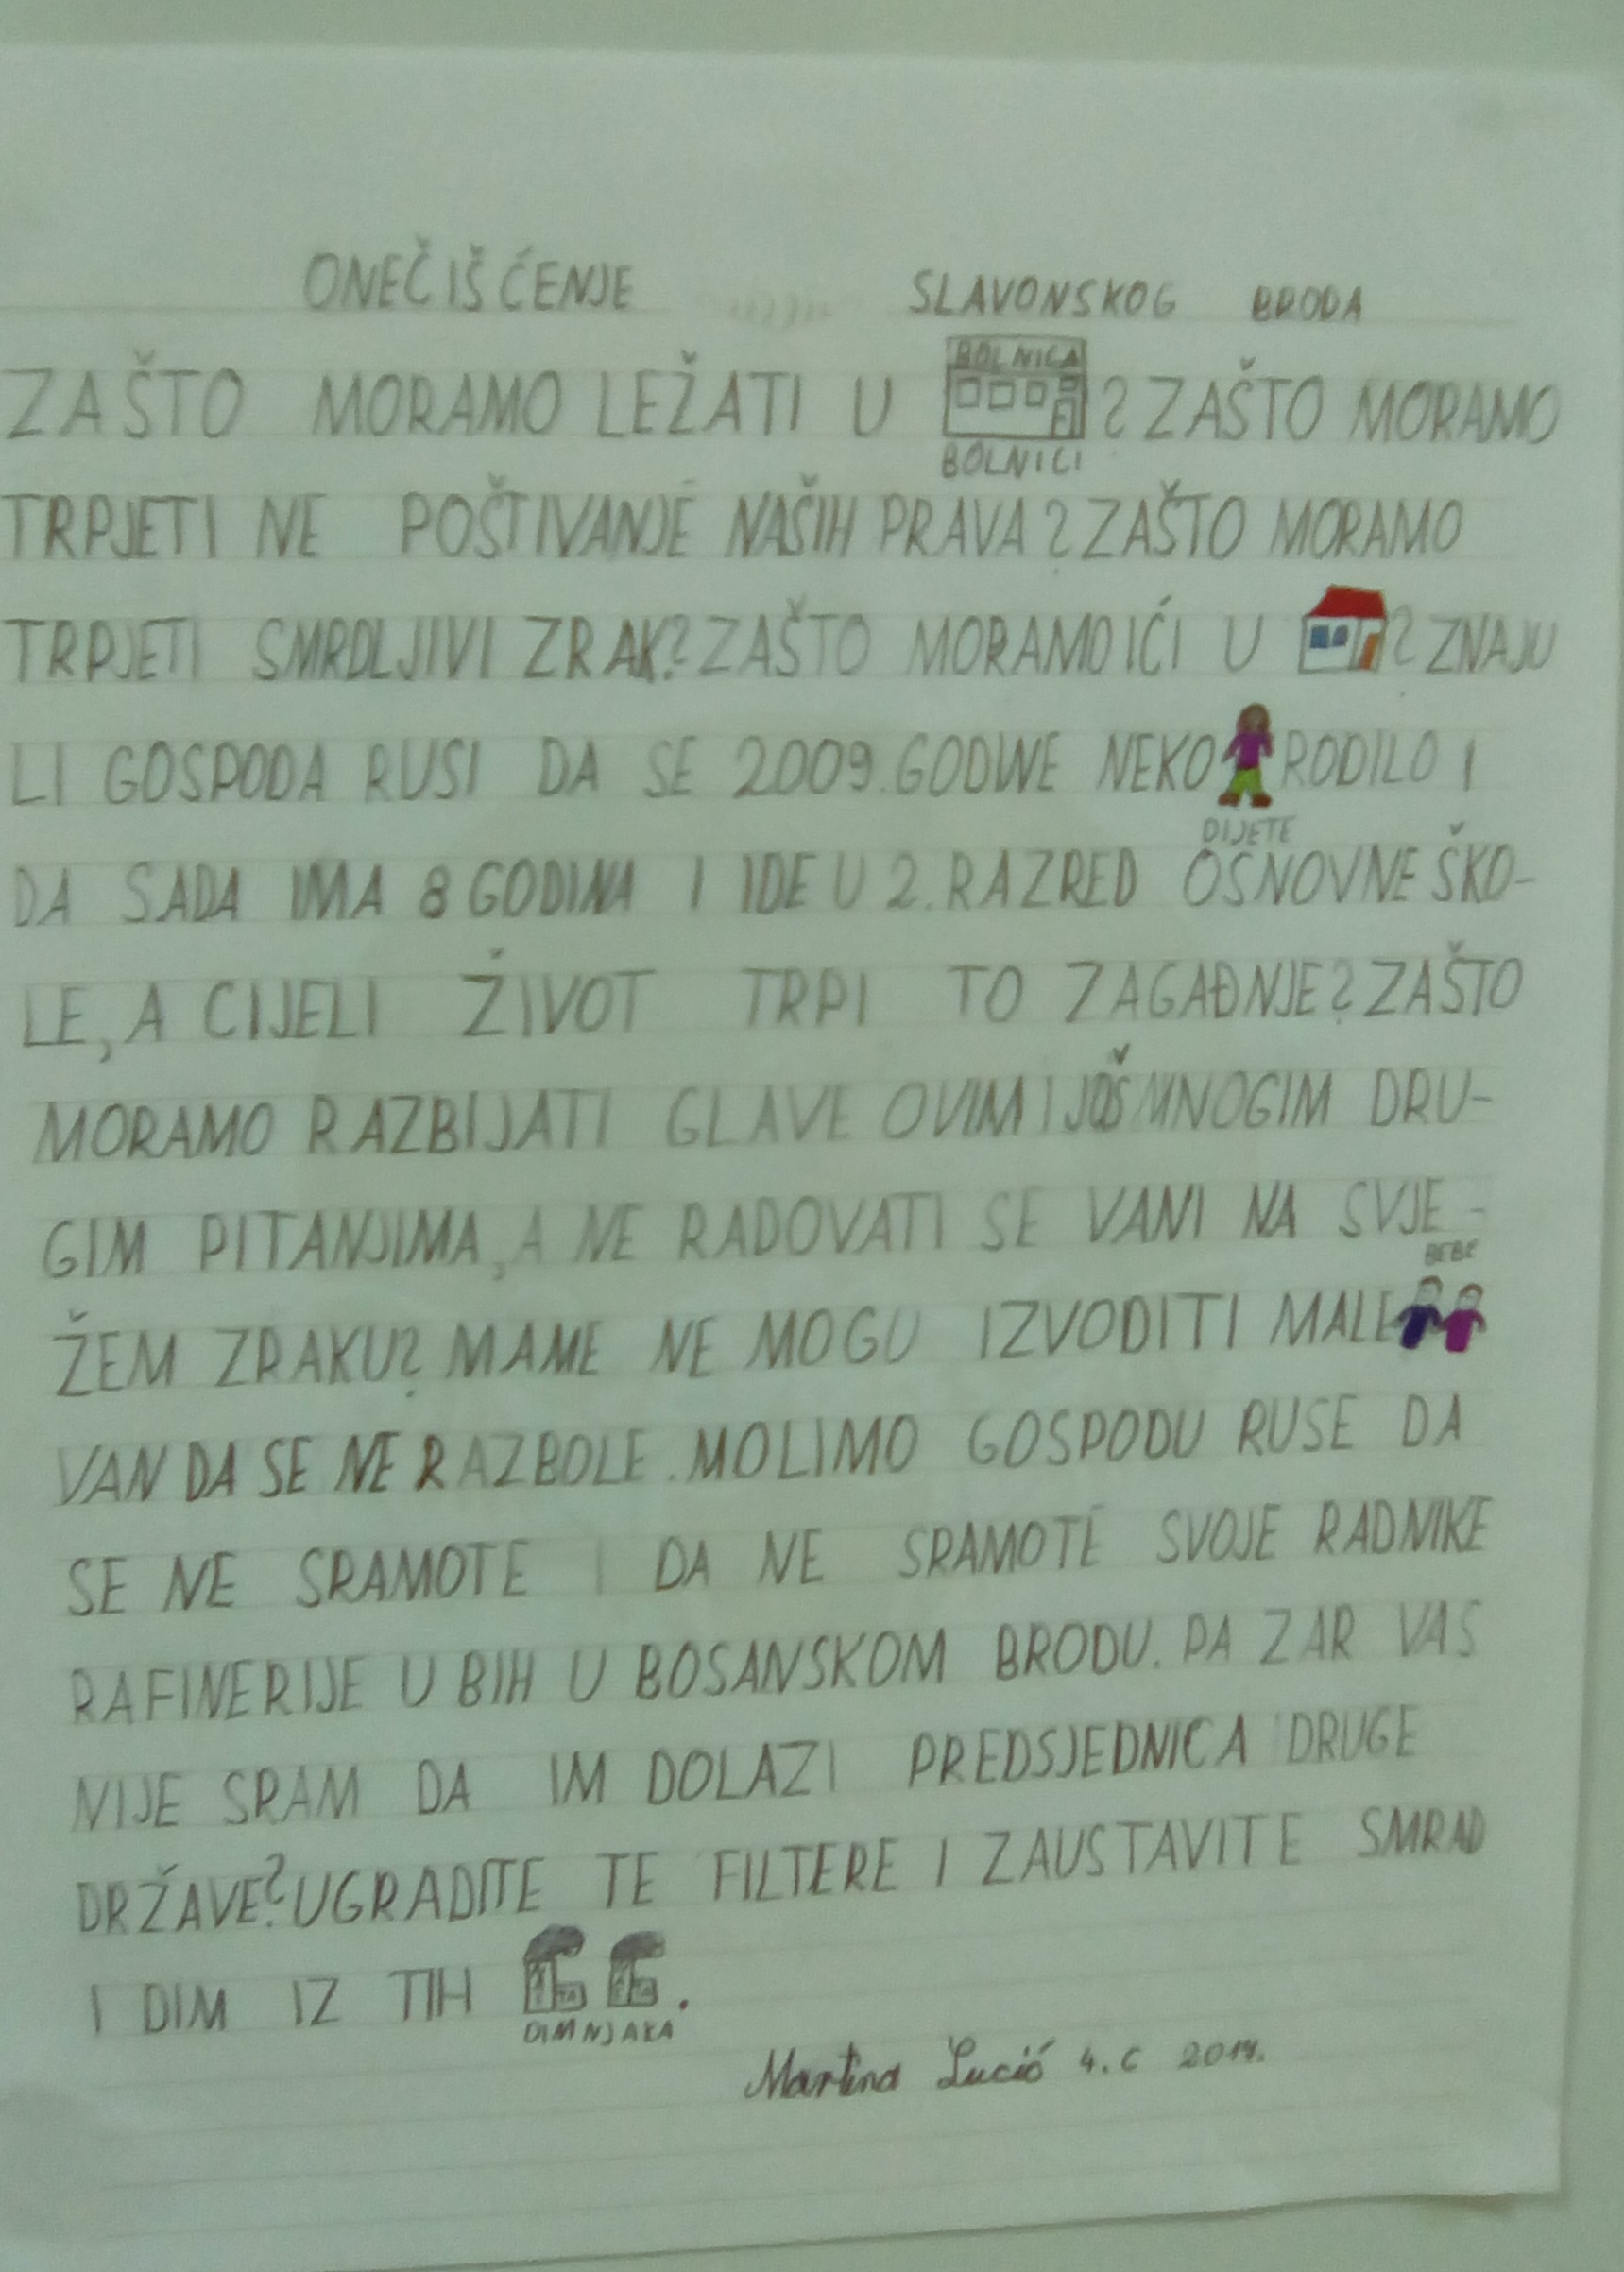 ONEČIŠĆENJE SLAVONSKOG BRODA
BOLNICA
ZAŠTO MORAMO LEŽATI U ? ZAŠTO MORAMO
BOLNICI
TRPJETI NE POŠTIVANJE NAŠIH PRAVA? ZAŠTO MORAMO
TRPJETI SMRDLJIVI ZRAK? ZAŠTO MORAMO IĆI U ? ZNAJU
LI GOSPODA RUSI DA SE 2009. GODINE NEKO RODILO I
DIJETE
DA SADA IMA 8 GODINA I IDE U 2. RAZRED OSNOVNE ŠKO-
LE, A CIJELI ŽIVOT TRPI TO ZAGAĐNJE? ZAŠTO
MORAMO RAZBIJATI GLAVE OVIM I JOŠ MNOGIM DRU-
GIM PITANJIMA, A NE RADOVATI SE VANI NA SVJE-
BEBE
ŽEM ZRAKU? MAME NE MOGU IZVODITI MALE
VAN DA SE NE RAZBOLE. MOLIMO GOSPODU RUSE DA
SE NE SRAMOTE I DA NE SRAMOTE SVOJE RADNIKE
RAFINERIJE U BIH U BOSANSKOM BRODU. PA ZAR VAS
NIJE SRAM DA IM DOLAZI PREDSJEDNICA DRUGE
DRŽAVE? UGRADITE TE FILTERE I ZAUSTAVITE SMRAD
I DIM IZ TIH .
DIMNJAKA
Martina Lucić 4. C